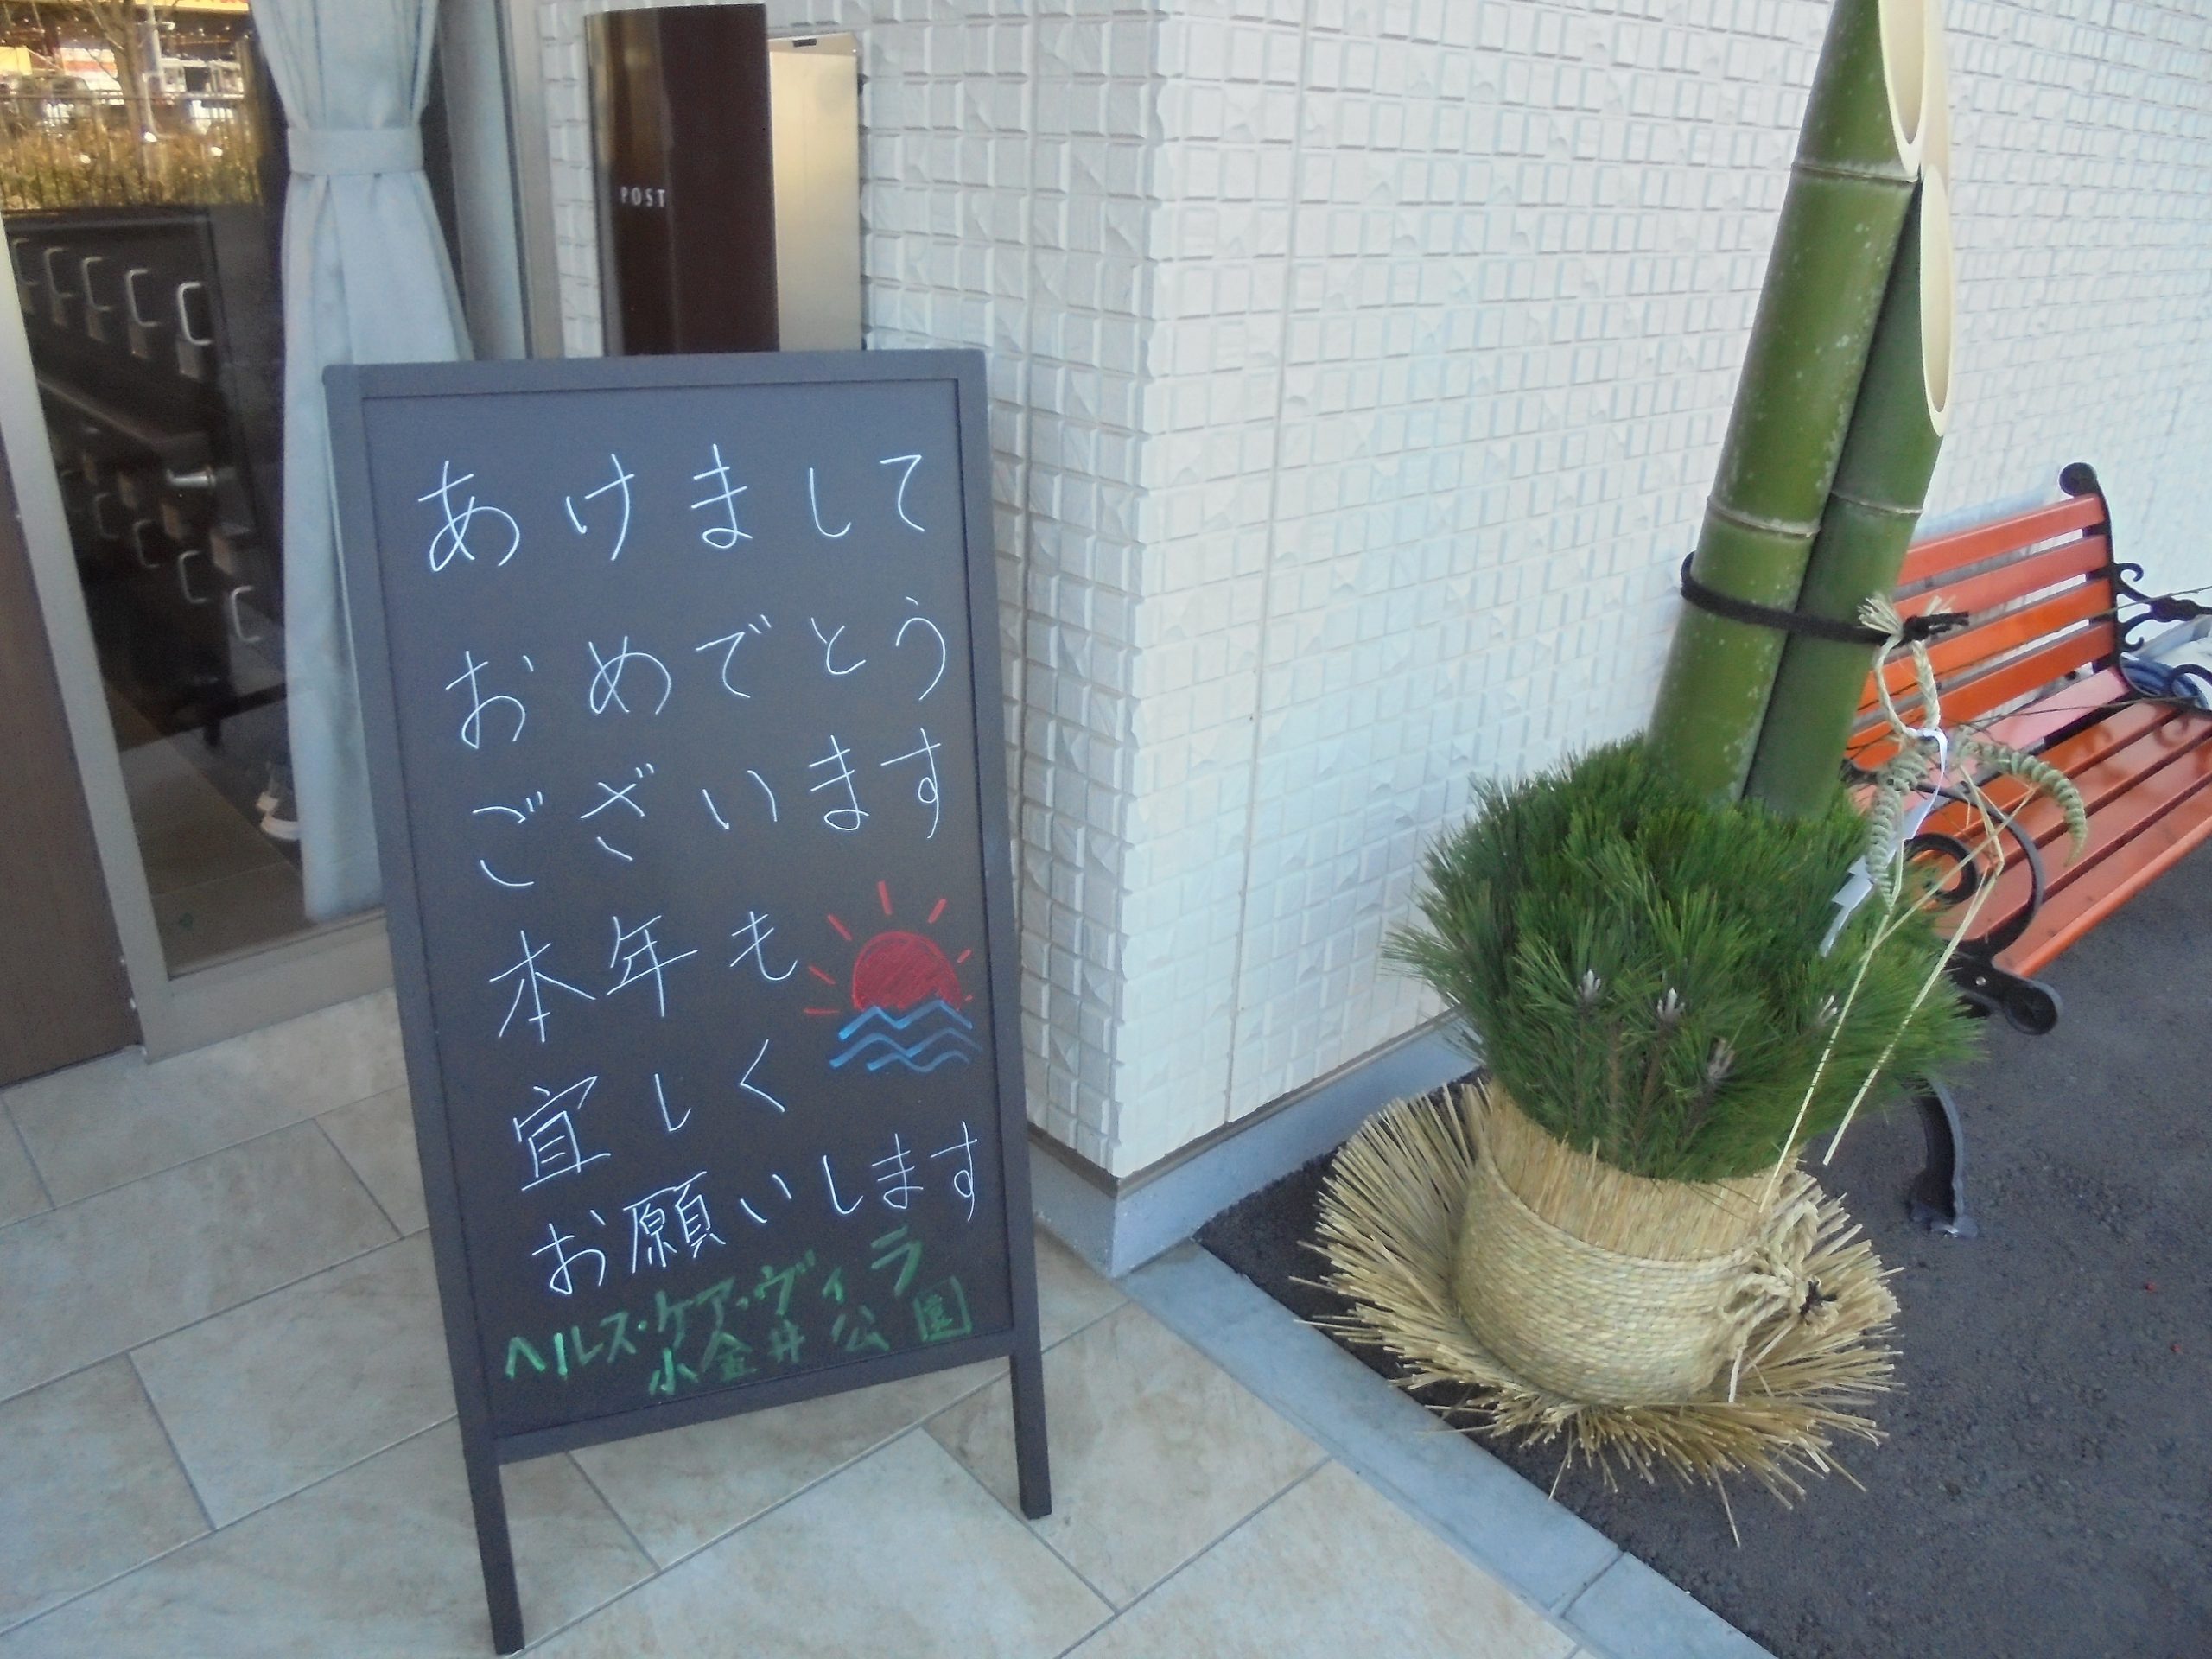 POST
あけまして
おめでとう
ございます
本年も
宜しく
お願いします
ヘルス・ケア・ヴィラ
小金井公園